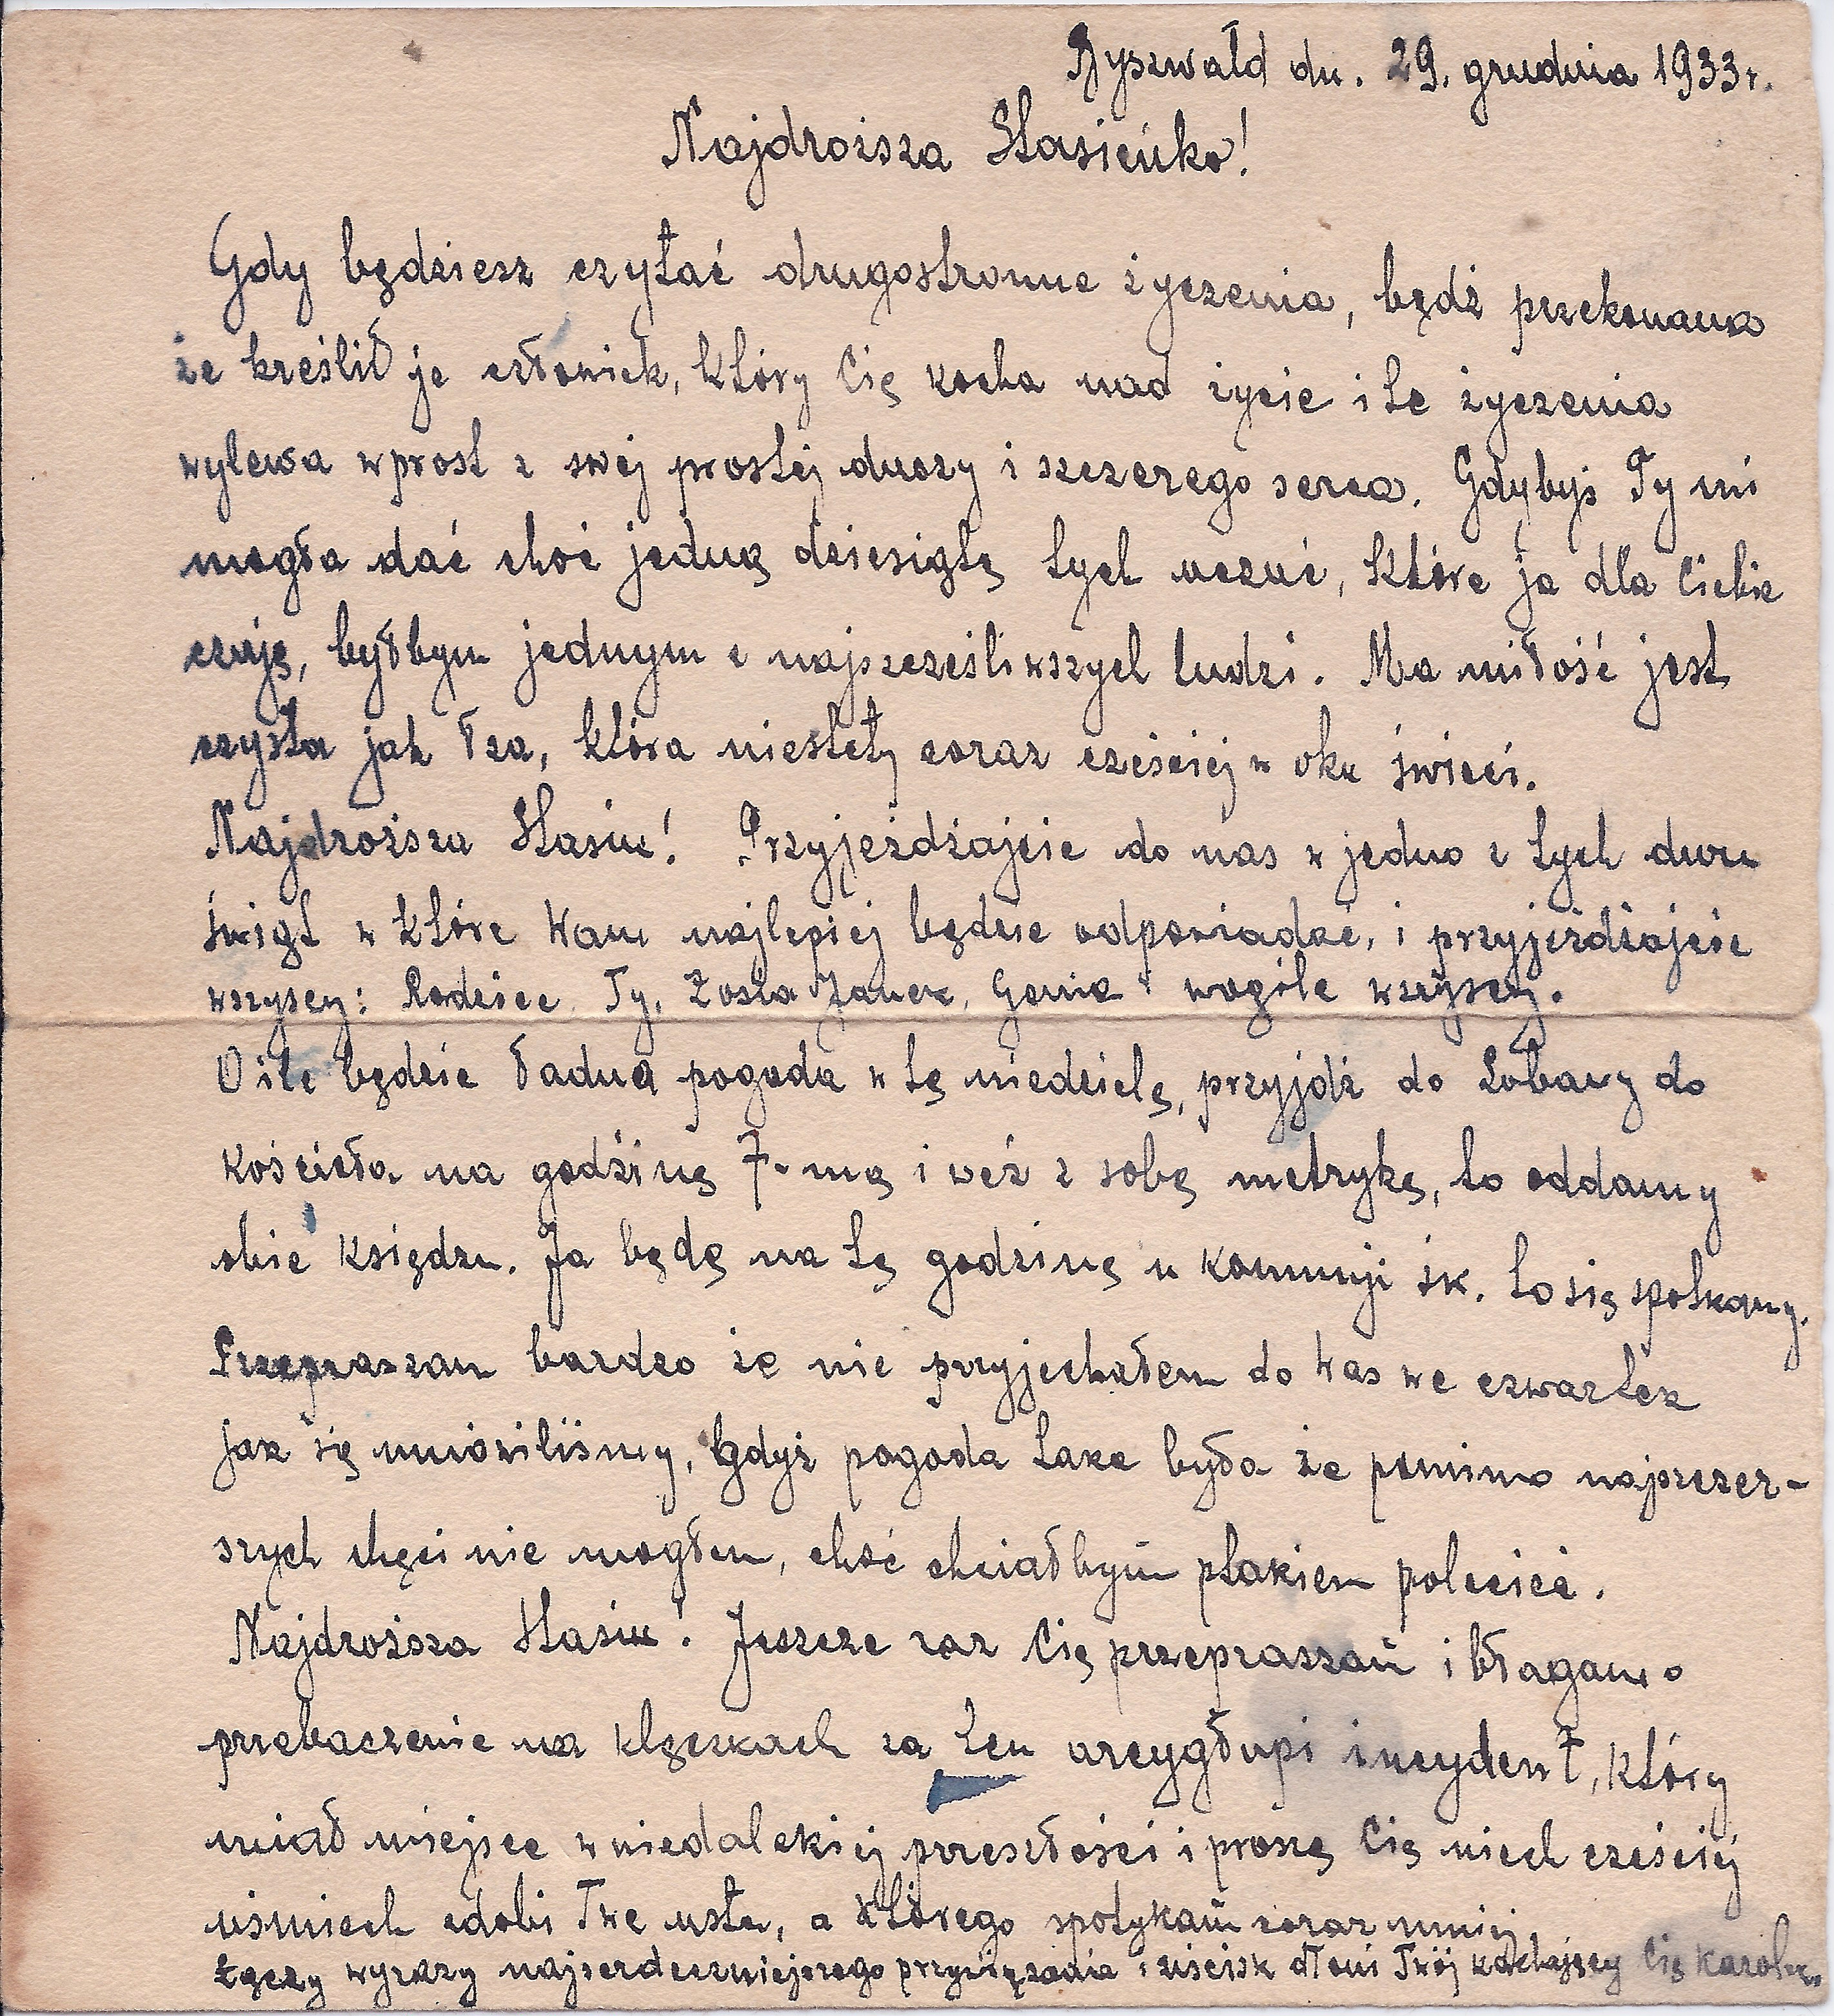 Ryszwałd dn. 29. grudnia 1933 r.
Najdroższa Stasieńko!
Gdy będziesz czytać drugostronne życzenia, bądź przekonana
że kreślił je człowiek, który Cię kocha nad życie i te życzenia
wylewa wprost z swej prostej duszy i szczerego serca. Gdybyś Ty mi
mogła dać choć jedną dziesiątą tych uczuć, które ja dla Ciebie
czuję, byłbym jednym z najszcześliwszych ludzi. Ma miłość jest
czysta jak łza, która niestety coraz cześciej w oku świeci.
Najdroższa Stasiu! Przyjeżdżajcie do nas w jedno z tych dwu
świąt w które Wam najlepiej będzie odpowiadać, i przyjeżdżajcie
wszyscy: Rodzice, Ty, Zosia Janek, Genia i wogóle wszyscy.
O ile będzie ładna pogoda w tę niedzielę, przyjdź do Łobawy do
kościoła na godzinę 7-mą i weź z sobą metrykę, to oddamy
obie księdzu. Ja będę na tę godzinę u komunji św. to się spotkamy.
Przepraszam bardzo że nie przyjechałem do Was we czwartek
jak się umówiliśmy, gdyż pogoda taka była że pomimo najszczer-
szych chęci nie mogłem, choć chciałbym ptakiem polecieć.
Najdroższa Stasiu! Jeszcze raz Cię przepraszam i błagam o
przebaczenie na klęczkach za ten arcygłupi incydent, który
miał miejsce w niedalekiej przeszłości i proszę Cię niech cześciej
uśmiech zdobi Twe usta, a którego spotykam coraz mniej
Łączy wyrazy najserdeczniejszego przywiązania i uścisk dłoni Twój kochający Cię Karol